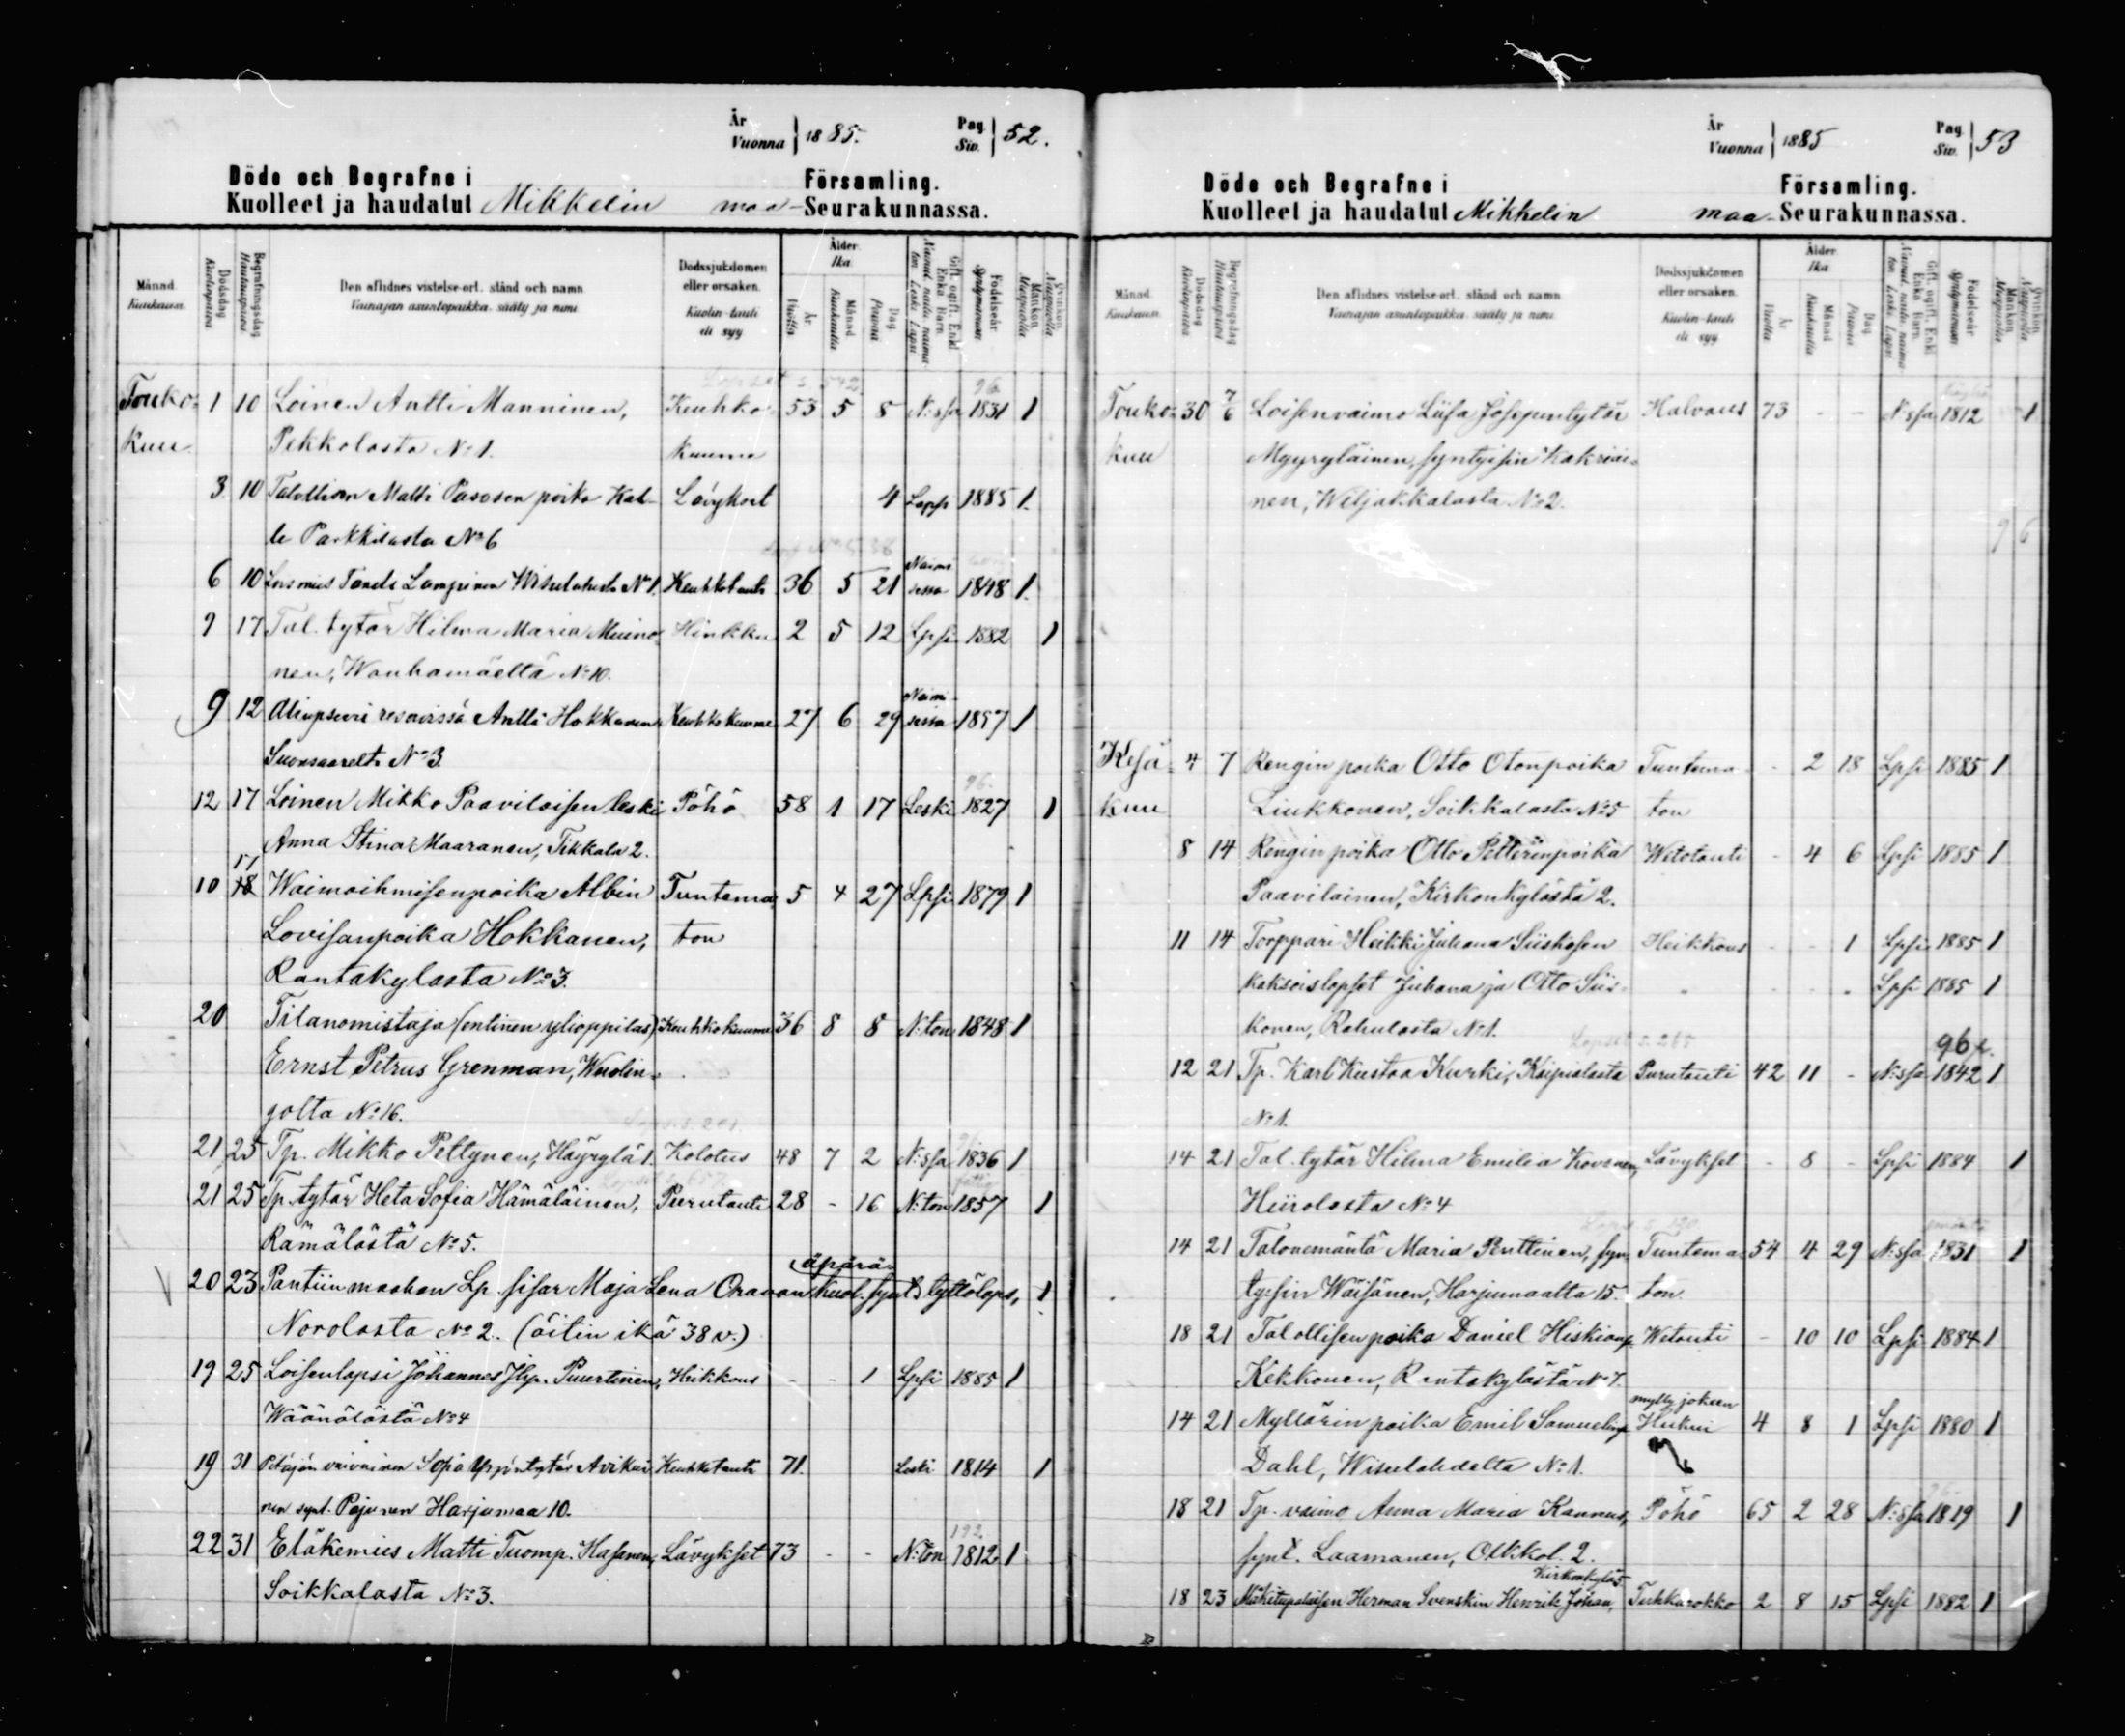 År
Vuonna 1885.
Pag.
Siv. 52.
Döde och Begrafne i Församling.
Kuolleet ja haudatut Mikkelin maa-Seurakunnassa.
Månad. Kuukausi.
Dödsdag Kuolinpäivä
Begrafningsdag Hautauspäivä
Den aflidnes vistelse-ort, stånd och namn
Vainajan asuntopaikka, sääty ja nimi
Dödssjukdomen eller orsaken.
Kuolin-tauti eli syy
Ålder. Ikä.
År Vuotta
Månad Kuukautta
Dag Päivää
Födelseår Syntymävuosi
Mankön Miespuolia
Qvinkön Naispuolia
Touko- 1 10 Loinen Antti Manninen, Keuhko- 53 5 8 N:ssa 1831 1
kuu Pekkolasta No 1. kuume
3 10 Talollisen Matti Pasosen poika Kal- Lövykset 4 Lapsi 1885 1.
le Parkkilasta No 6
6 10 Lois mies Taneli Lampinen Wisulahdesta No 1. Keuhkotauti 36 5 21 Naimisessa 1848 1.
9 17 Tal. tytär Hilma Maria Muino- Hinkku 2 5 12 Lpsi 1882 1
nen, Wanhamäeltä No 10.
9 12 Aliupseeri reservissä Antti Hokkanen Keuhkokuume 27 6 29 Naimisessa 1857 1
Suonsaarelta No 3.
12 17 Loinen Mikko Paaviloisen leski Pöhö 58 1 17 Leski 1827 1
Anna Stina Maaranen, Tikkala 2.
17
10 18 Waimoihmisenpoika Albin Tuntema- 5 4 27 Lpsi 1879 1
Lovisanpoika Hokkanen, ton
Rantakylasta No 3.
20 Tilanomistaja (entinen ylioppilas) Keuhkokuume 36 8 8 N:ton 1848 1
Ernst Petrus Grenman, Wuolin-
golta No 16.
21 25 Tp. Mikko Peltynen, Häyrylä 1. Kolotus 48 7 2 N:ssa 1836 1
21 25 Tp. tytär Heta Sofia Hämäläinen, Purutauti 28 - 16 N:ton 1857 1
Rämälästä No 5.
20 23 Pantiin maahan Lp. sisar Maja Lena Oravan (äpärä) kuol. synt. tyttölaps, 1
Norolasta No 2. (äitin ikä 38 v.)
19 25 Loisenlapsi Johannes Jhp. Puurtinen, Heikkous - - 1 Lpsi 1885 1
Wäänälästä No 4
19 31 Pitäjän vaivainen Sofia Yrjöntytär Avikai- Keuhkotauti 71. Leski 1814 1
nen synt. Pajunen Harjumaa 10.
22 31 Eläkemies Matti Tuomp. Hasanen, Lävykset 73 - - N:ton 1812 1
Soikkalasta No 3.
År
Vuonna 1885
Pag.
Siv. 53
Döde och Begrafne i Församling.
Kuolleet ja haudatut Mikkelin maa-Seurakunnassa.
Månad. Kuukausi.
Dödsdag Kuolinpäivä
Begrafningsdag Hautauspäivä
Den aflidnes vistelse-ort, stånd och namn
Vainajan asuntopaikka, sääty ja nimi
Dödssjukdomen eller orsaken.
Kuolin-tauti eli syy
Ålder. Ikä.
År Vuotta
Månad Kuukautta
Dag Päivää
Födelseår Syntymävuosi
Mankön Miespuolia
Qvinkön Naispuolia
Touko- 30 7/6 Loisenvaimo Liisa Josepintytär Halvaus 73 - - N:ssa 1812 1
kuu Myyryläinen, syntyisin Kakriai-
nen, Wiljakkalasta No 2.
9 6
Kesä- 4 7 Rengin poika Otto Otonpoika Tuntema- - 2 18 Lpsi 1885 1
kuu Liukkonen, Soikkalasta No 5 ton
8 14 Rengin poika Otto Petterinpoika Wetotauti - 4 6 Lpsi 1885 1
Paavilainen, Kirkonkylästä 2.
11 14 Torppari Heikki Juhana Siiskosen Heikkous - - 1 Lpsi 1885 1
kaksoislapset Juhana ja Otto Siis- Lpsi 1885 1
konen, Rahulasta No 1.
Lapset s. 265
96 f.
12 21 Tp. Karl Kustaa Kurki, Kaipialasta Purutauti 42 11 - N:ssa 1842 1
No 1.
14 21 Tal. tytär Hilma Emilia Kovanen, Lävykset - 8 - Lpsi 1884 1
Hiirolasta No 4
14 21 Talonemäntä Maria Penttinen, syn- Tuntema- 54 4 29 N:ssa 1831 1
tyisin Wäisänen, Harjumaalta 15. ton.
18 21 Talollisen poika Daniel Hiskianp. Wetauti - 10 10 Lpsi 1884 1
Kekkonen, Rantakylästä No 7.
mylly jokeen
14 21 Myllärin poika Emil Samuelinp. Hukui 4 8 1 Lpsi 1880 1
Dahl, Wisulahdelta No 1.
18 21 Tp. vaimo Anna Maria Kannus, Pöhö 65 2 28 N:ssa 1819 1
synt. Laamanen, Olkkol. 2.
Kirkonkylä 5.
18 23 Mäkitupalaisen Herman Svenskin Henrik Johan, Tuhkarokko 2 8 15 Lpsi 1882 1